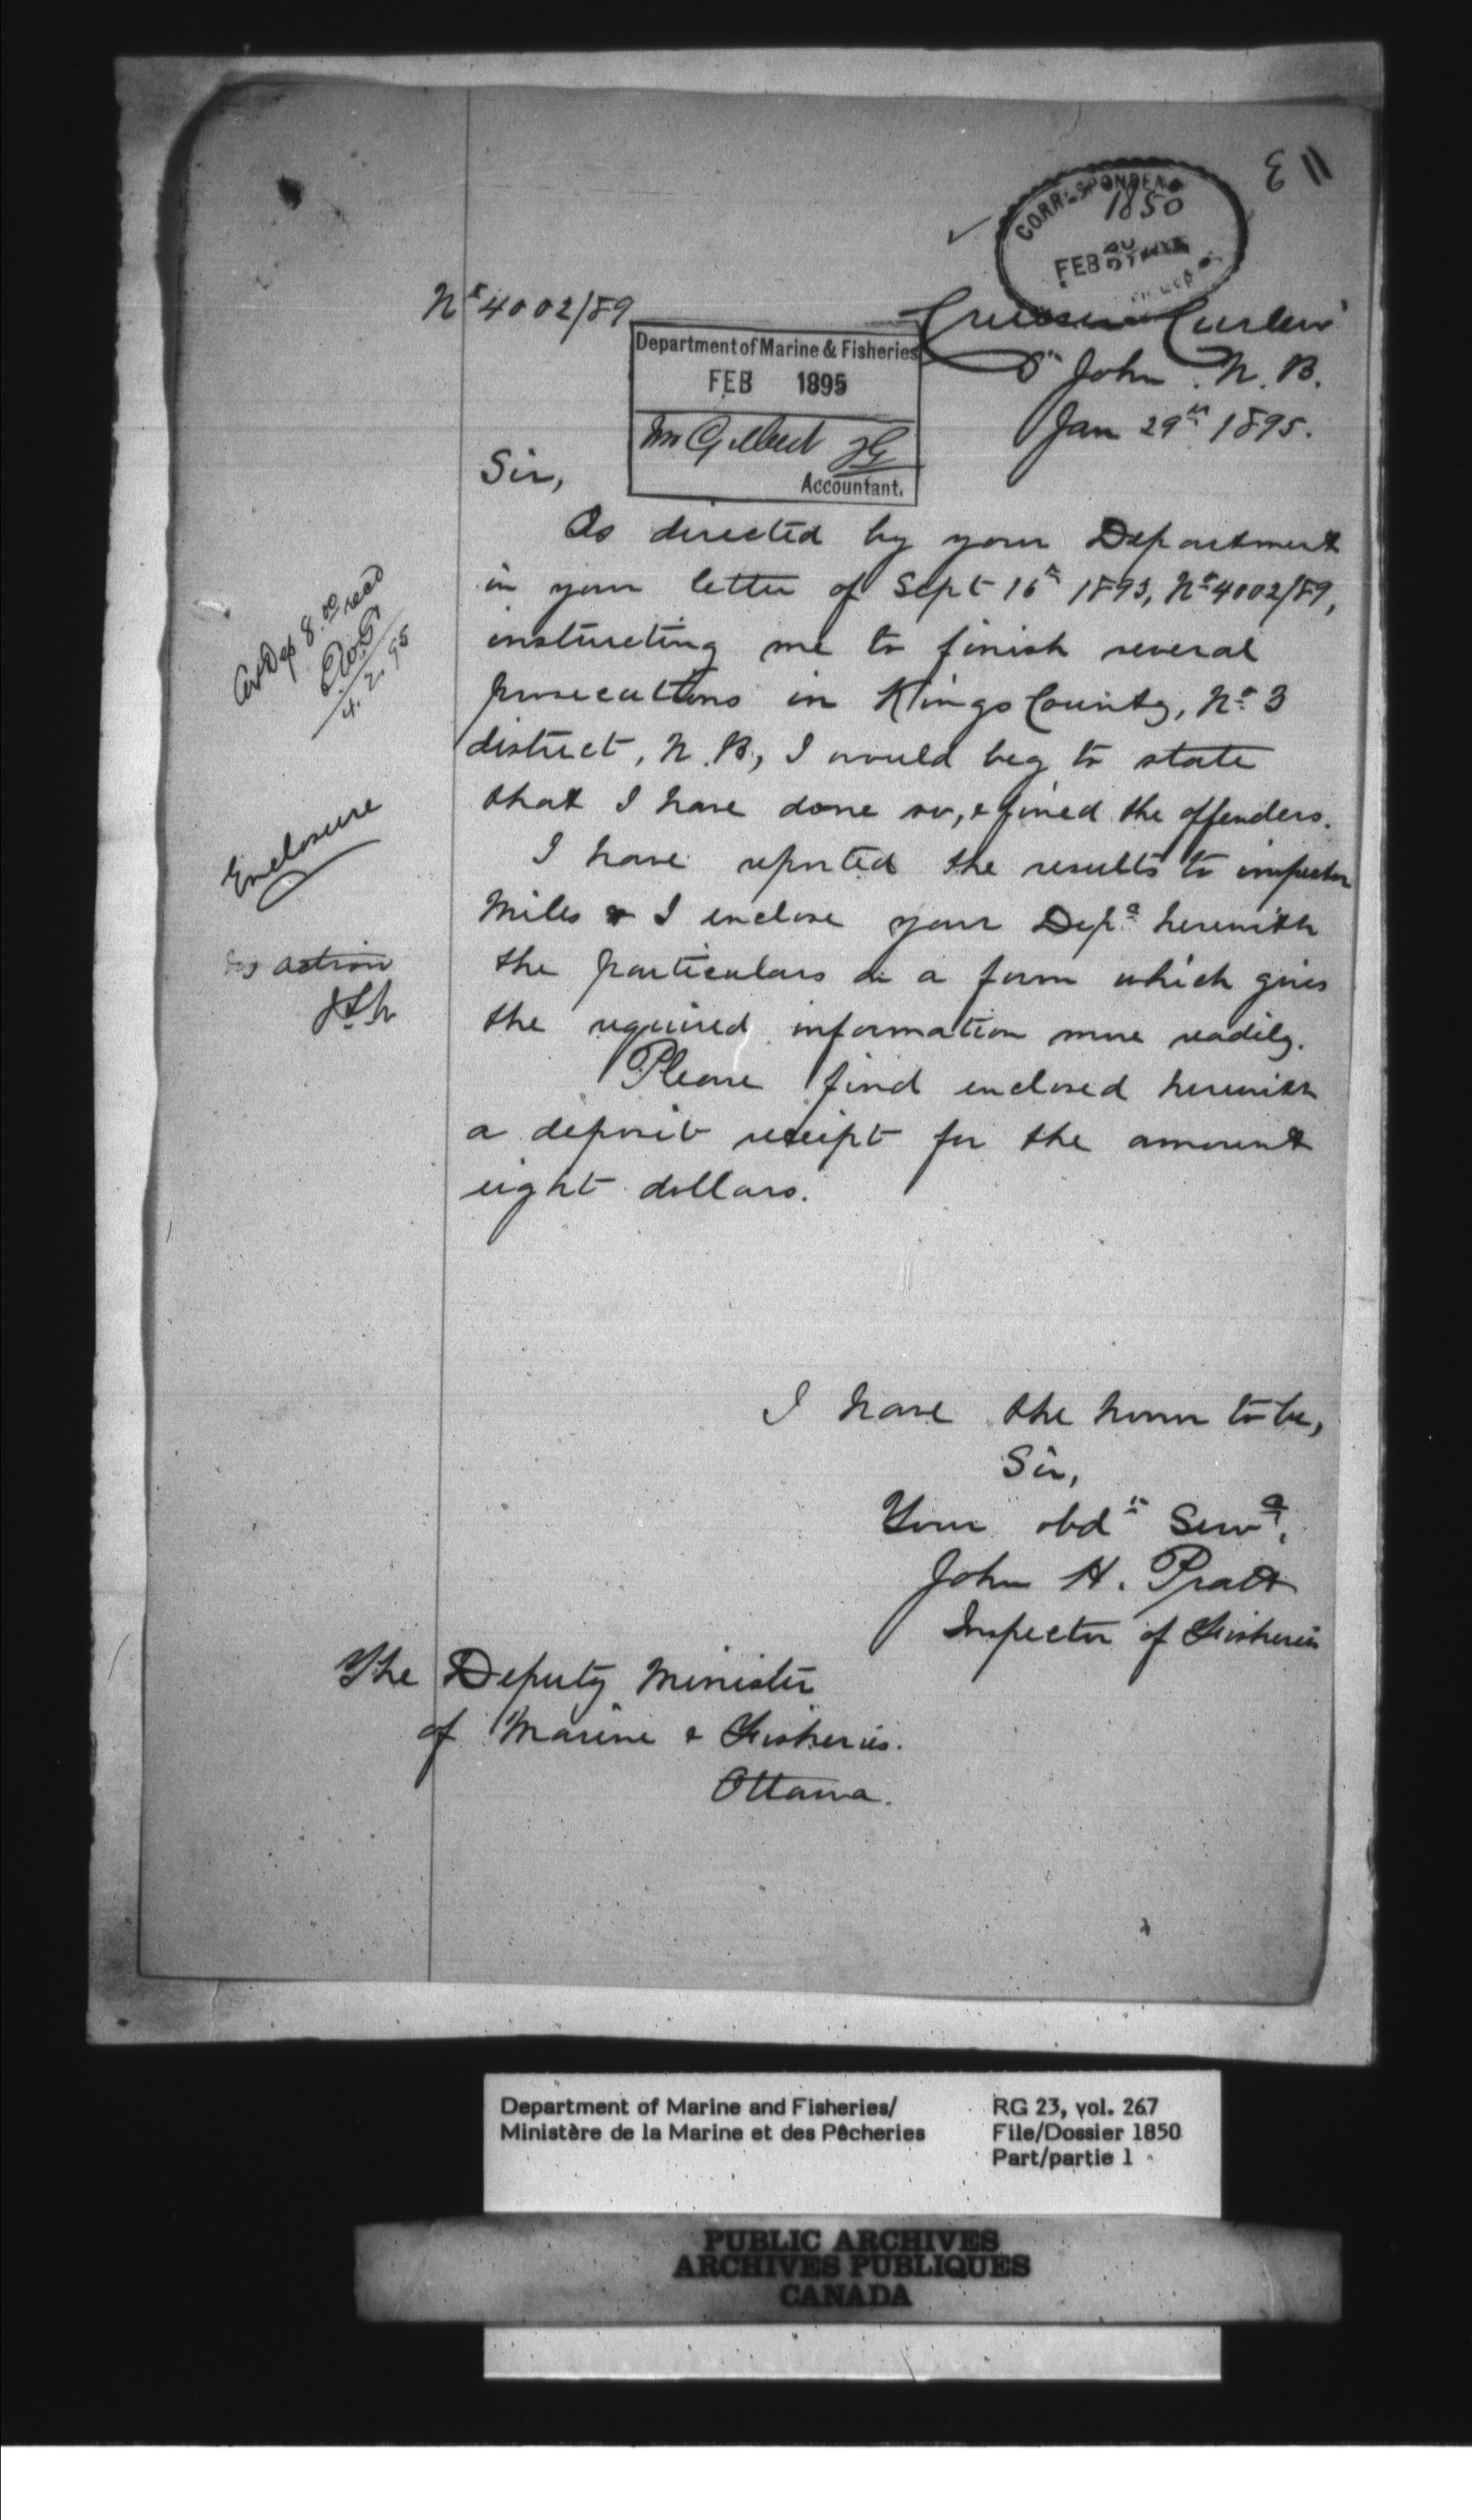 1850
CORRESPONDENCE
FEB
No 4002/89
Cruiser Curlew
Department of Marine & Fisheries
FEB 1895
Mr Gilbert
Accountant.
St John. N. B.
Jan 29th 1895.
Sir,
As directed by your Department
in your letter of Sept 16th 1893, No 4002/89,
instructing me to finish several
prosecutions in Kings County, No 3
district, N. B., I would beg to state
that I have done so, & fined the offenders.
I have reported the results to inspector
Miles & I enclose your Dept herewith
the particulars in a form which gives
the required information more readily.
Please find enclosed herewith
a deposit receipt for the amount
eight dollars.
Dep 8.00 recd
4.2.95
Enclosure
No action
I have the honor to be,
Sir,
Your obdt Servt,
John H. Pratt
Inspector of Fisheries
The Deputy Minister
of Marine & Fisheries.
Ottawa.
Department of Marine and Fisheries/
Ministère de la Marine et des Pêcheries
RG 23, vol. 267
File/Dossier 1850
Part/partie 1
PUBLIC ARCHIVES
ARCHIVES PUBLIQUES
CANADA